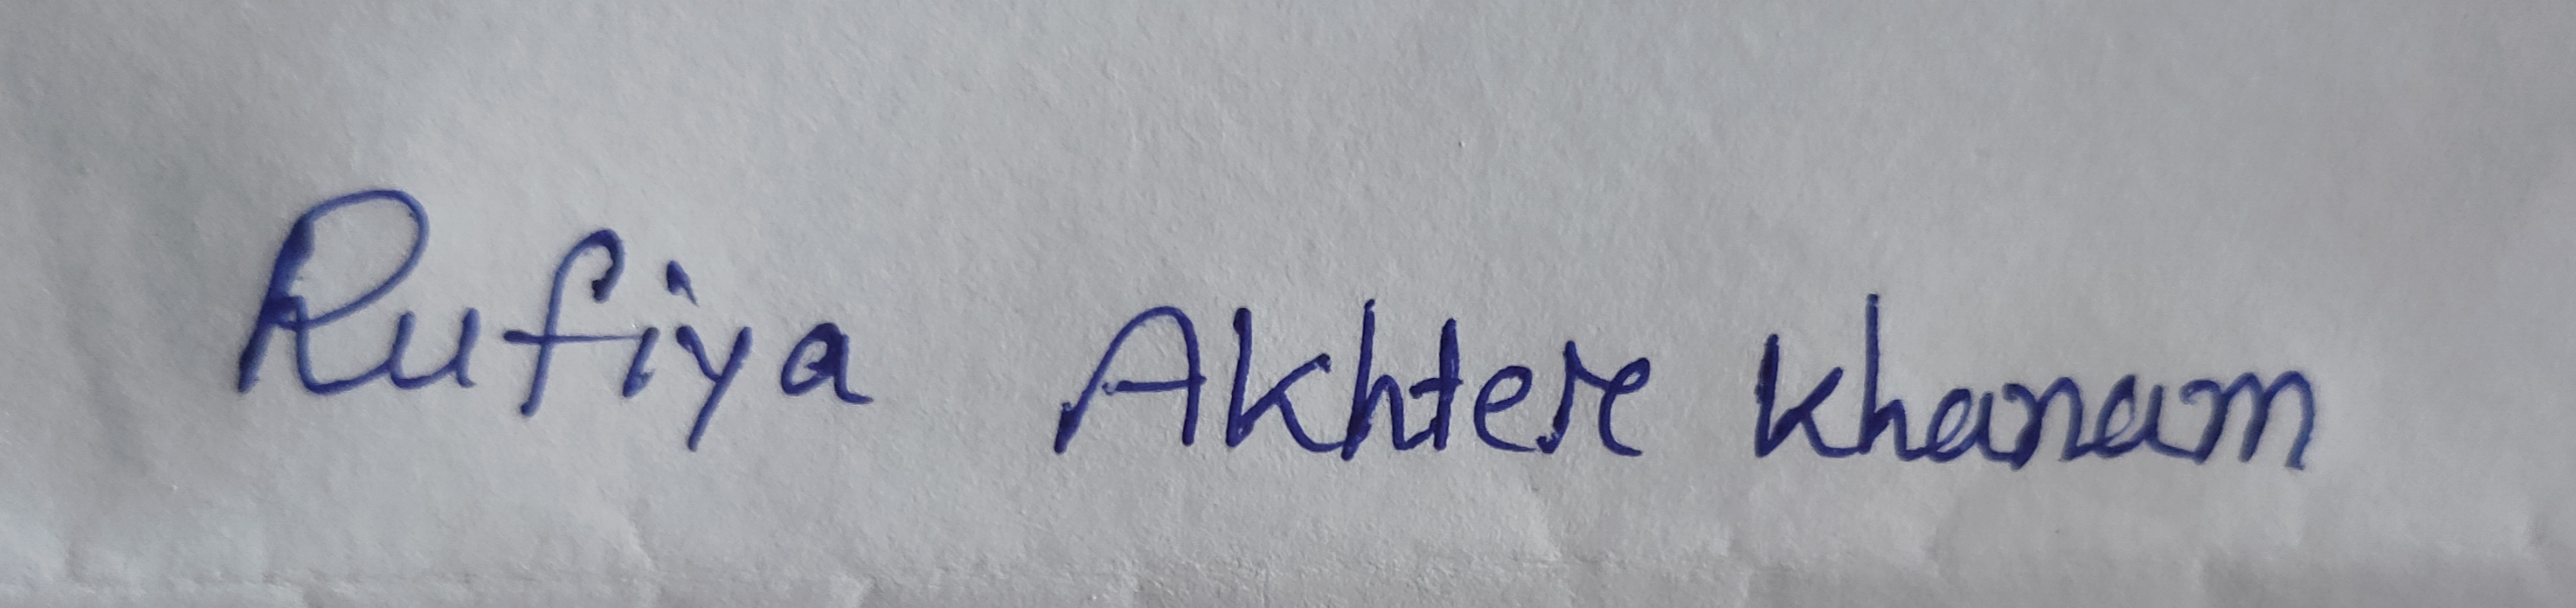 Rufiya Akhtere Khanam